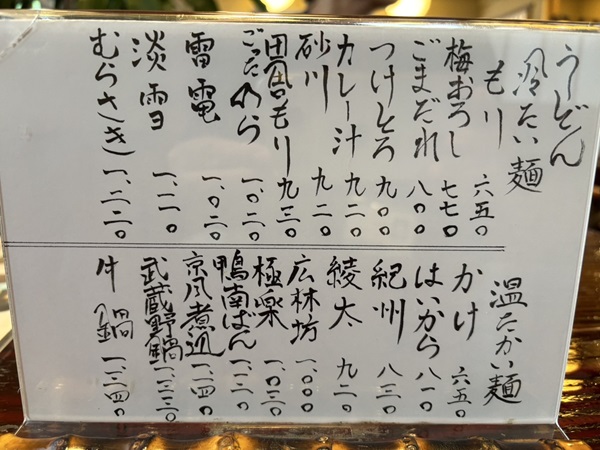 うどん
冷たい麺
もり 六五〇
梅おろし 七七〇
ごまだれ 八〇〇
つけとろ 九〇〇
カレー汁 九二〇
砂川 九二〇
田舎もり 九三〇
ごったのら 一、〇二〇
雷電 一、〇二〇
淡雪 一、二一〇
むらさき 一、二二〇
温たかい麺
かけ 六五〇
はいから 八一〇
紀州 八三〇
綾太 九二〇
広林坊 一、〇〇〇
極楽 一、〇三〇
鴨南ばん 一、一二〇
京風煮込 一、一四〇
武蔵野鍋 一、二三〇
牛鍋 一、二四〇